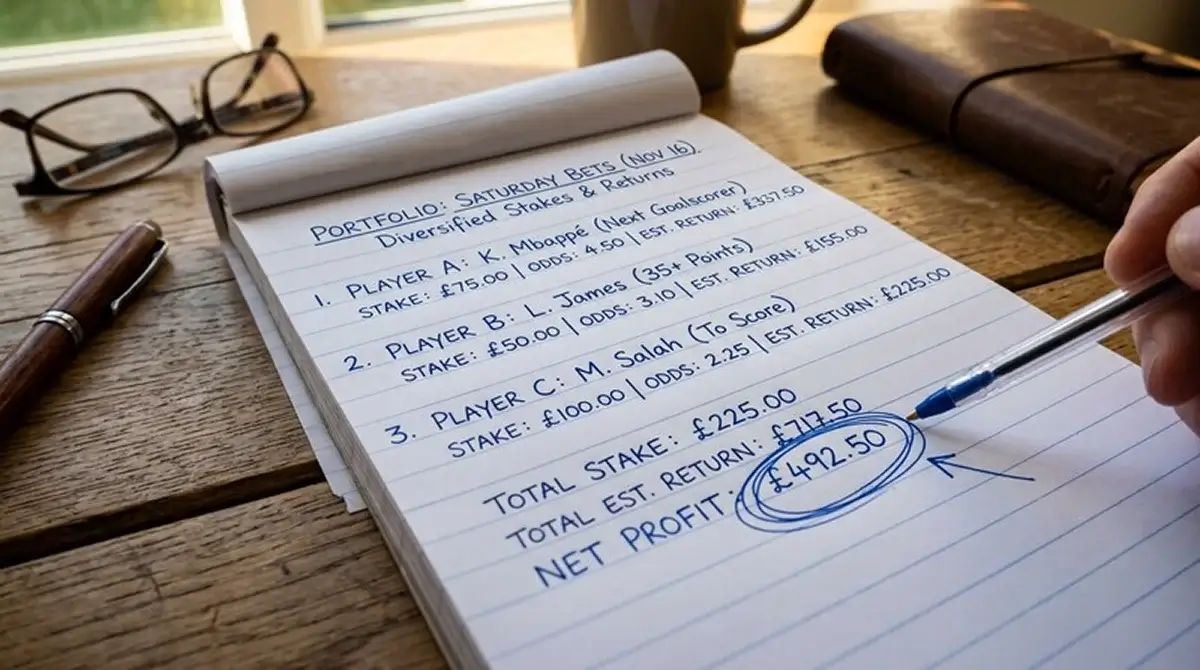 PORTFOLIO: SATURDAY BETS (NOV 16)
Diversified Stakes & Returns
1. PLAYER A: K. Mbappé (Next Goalscorer)
STAKE: £75.00 | ODDS: 4.50 | EST. RETURN: £337.50
2. PLAYER B: L. James (35+ Points)
STAKE: £50.00 | ODDS: 3.10 | EST. RETURN: £155.00
3. PLAYER C: M. Salah (To Score)
STAKE: £100.00 | ODDS: 2.25 | EST. RETURN: £225.00
TOTAL STAKE: £225.00
TOTAL EST. RETURN: £717.50
NET PROFIT: £492.50